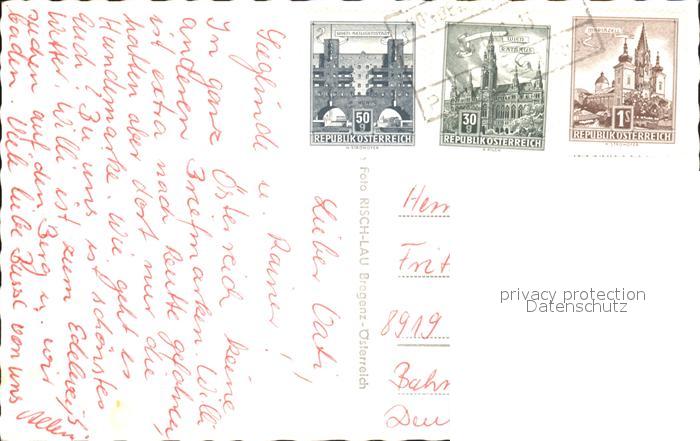 WIEN-HEILIGENSTADT
50 g
REPUBLIK ÖSTERREICH
H. STROHOFER
WIEN
RATHAUS
30 g
REPUBLIK ÖSTERREICH
MARIAZELL
1 S
REPUBLIK ÖSTERREICH
H. STROHOFER
Lieber Vati,
Sieglinde u. Rainer!
In ganz Österreich keine
anderen Briefmarken. Willi
ist extra nach Reutte gefahren,
hatten aber dort nur die
Hundemarke. Wie geht es
Euch? Bei uns ist schönstes
Wetter. Willi ist zum Edelweiß
suchen auf den Berg u. wir
baden. Viele liebe Bussi von uns
allen
Foto RISCH-LAU Bregenz-Österreich
Herr
Frit
8919
Bahn
Deu
privacy protection
Datenschutz